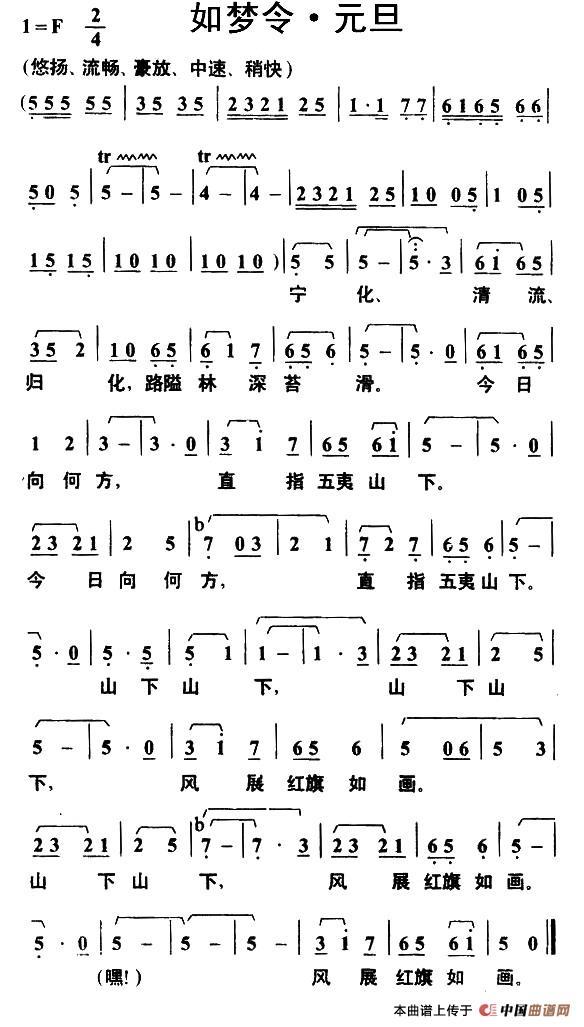 如梦令·元旦
1=F 2/4
(悠扬、流畅、豪放、中速、稍快)
(555 55 | 35 35 | 2321 25 | 1·1 77 | 6165 66 |
50 5 | tr 5 – | 5 – | tr 4 – | 4 – | 2321 25 | 10 05 | 1 05 |
15 15 | 10 10 | 10 10 ) | 5 5 | 5 – | 5·3 | 61 65 |
宁 化、 清 流、
35 2 | 10 65 | 6 1 7 | 65 6 | 5 – | 5·0 | 61 65 |
归 化,路隘 林 深 苔 滑。 今 日
1 2 | 3 – | 3·0 | 3 1 7 | 65 61 | 5 – | 5·0 |
向 何 方, 直 指 五夷 山 下。
23 21 | 2 5 | b7 03 | 2 1 | 7 2 7 | 65 6 | 5 – |
今 日 向 何 方, 直 指 五夷 山 下。
5·0 | 5·5 | 5 1 | 1 – | 1·3 | 23 21 | 2 5 |
山 下 山 下, 山 下 山
5 – | 5·0 | 3 1 7 | 65 6 | 5 06 | 5 3 |
下, 风 展 红旗 如 画。
23 21 | 2 5 | b7 – | 7·3 | 23 21 | 65 6 | 5 – |
山 下 山 下, 风 展 红旗 如 画。
5·0 | 5 – | 5 – | 5 – | 3 1 7 | 65 61 | 5 0 ‖
(嘿!) 风 展 红旗 如 画。
本曲谱上传于 中国曲谱网